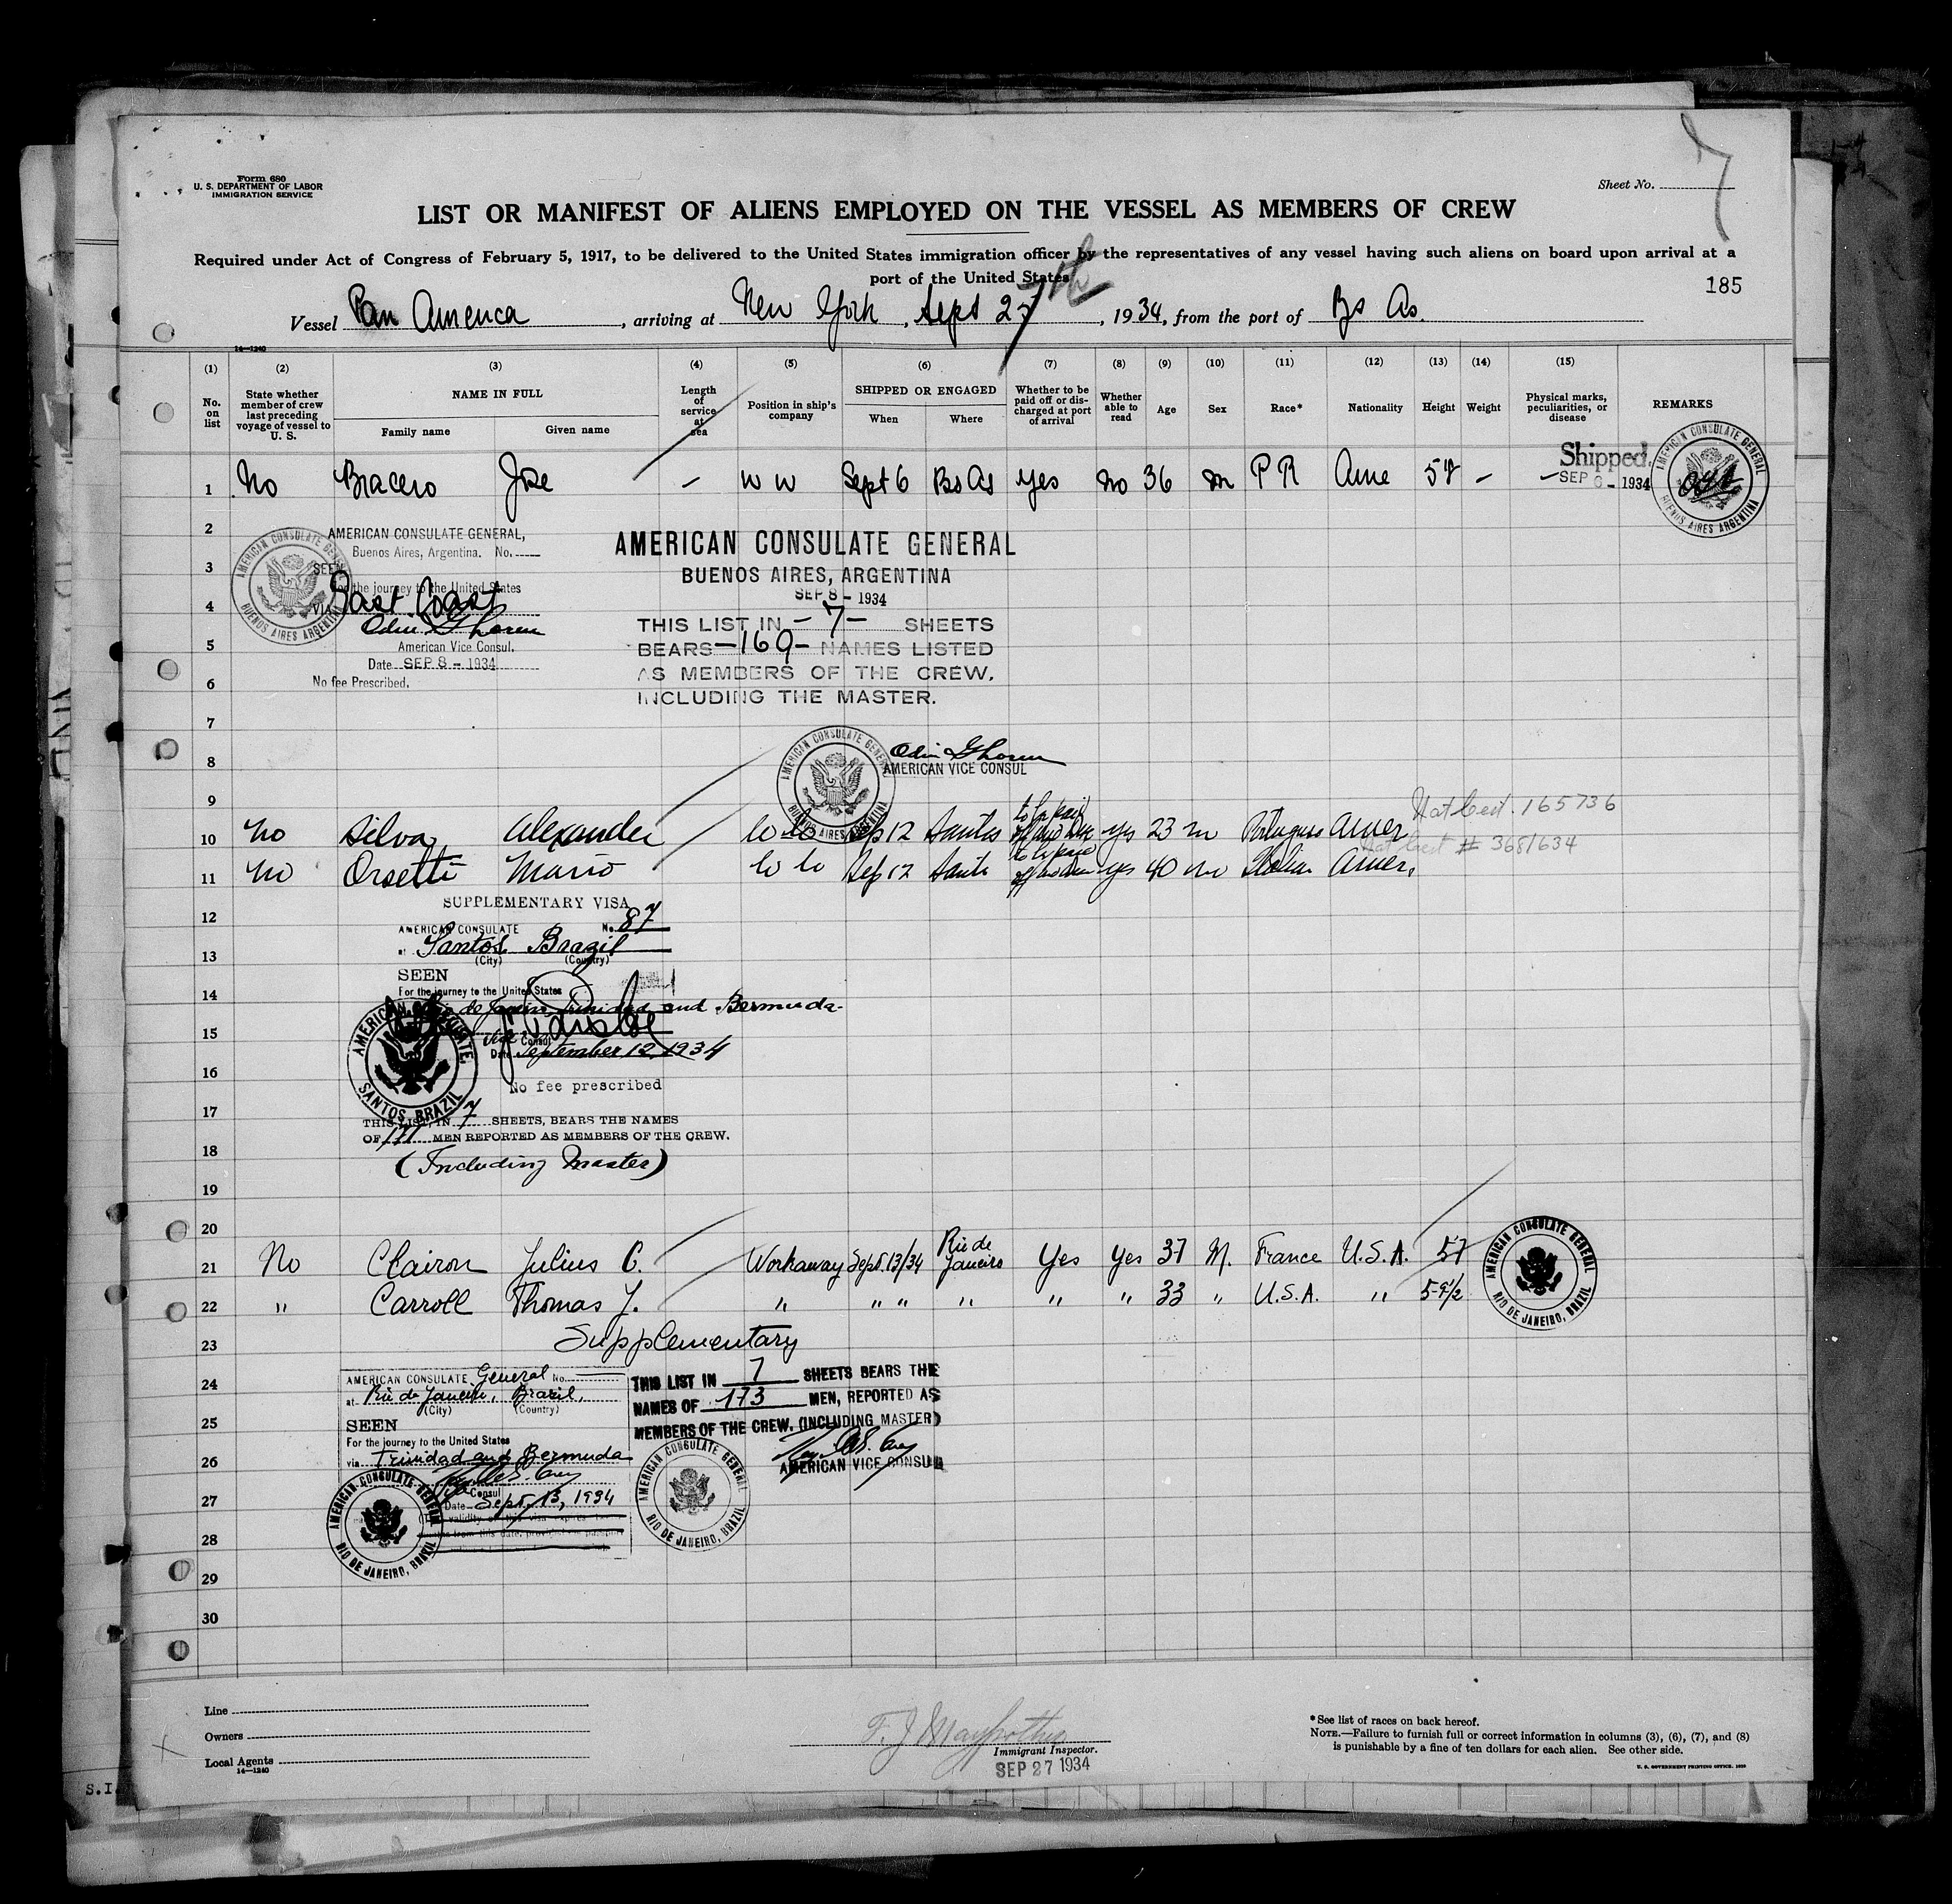 Form 680
U. S. DEPARTMENT OF LABOR
IMMIGRATION SERVICE
Sheet No. 7
LIST OR MANIFEST OF ALIENS EMPLOYED ON THE VESSEL AS MEMBERS OF CREW
Required under Act of Congress of February 5, 1917, to be delivered to the United States immigration officer by the representatives of any vessel having such aliens on board upon arrival at a
port of the United States
185
Vessel Pan America, arriving at New York, Sept 27th, 1934, from the port of Bs As.
14—1240
(1) (2) (3) (4) (5) (6) (7) (8) (9) (10) (11) (12) (13) (14) (15)
No. on list
State whether member of crew last preceding voyage of vessel to U. S.
NAME IN FULL
Family name Given name
Length of service at sea
Position in ship's company
SHIPPED OR ENGAGED
When Where
Whether to be paid off or discharged at port of arrival
Whether able to read
Age Sex Race* Nationality Height Weight
Physical marks, peculiarities, or disease
REMARKS
1 No Bracero Jose – W W Sept 6 Bs As Yes No 36 m P R Ame 58 – –
Shipped.
SEP 6 – 1934
AMERICAN CONSULATE GENERAL
BUENOS AIRES ARGENTINA
2
3
4
5
6
7
8
9
AMERICAN CONSULATE GENERAL
BUENOS AIRES ARGENTINA
AMERICAN CONSULATE GENERAL,
Buenos Aires, Argentina. No.
SEEN
For the journey to the United States
VIA East Coast
American Vice Consul.
Date SEP 8 – 1934
No fee Prescribed.
AMERICAN CONSULATE GENERAL
BUENOS AIRES, ARGENTINA
SEP 8 – 1934
THIS LIST IN – 7 – SHEETS
BEARS – 169 – NAMES LISTED
AS MEMBERS OF THE CREW,
INCLUDING THE MASTER.
AMERICAN CONSULATE GENERAL
BUENOS AIRES ARGENTINA
AMERICAN VICE CONSUL
Nat Cert. 165736
10 No Silva Alexander W W Sep 12 Santos to be paid off yes 23 m Portuguese Amer
Nat Cert # 3681634
11 No Orsetti Mario W W Sep 12 Santos to be paid off yes 40 m Italian Amer.
12
13
14
15
16
17
18
19
20
SUPPLEMENTARY VISA
AMERICAN CONSULATE No. 87
at Santos Brazil
(City) (Country)
SEEN
For the journey to the United States
de Janeiro, Trinidad and Bermuda
Vice Consul
Date September 12, 1934
No fee prescribed
AMERICAN CONSULATE,
SANTOS, BRAZIL
THIS LIST, IN 7 SHEETS, BEARS THE NAMES
OF 171 MEN REPORTED AS MEMBERS OF THE CREW.
(Including Master)
21 No Clairon Julius C. Workaway Sept. 13/34 Rio de Janeiro Yes Yes 37 M. France U.S.A. 57
22 " Carroll Thomas J. " " " " " " 33 " U.S.A. " 5-9½
AMERICAN CONSULATE GENERAL
RIO DE JANEIRO, BRAZIL
23 Supplementary
24
25
26
27
28
29
30
AMERICAN CONSULATE General No.
at Rio de Janeiro, Brazil,
(City) (Country)
SEEN
For the journey to the United States
via Trinidad and Bermuda
Consul
Date Sept. 13, 1934
AMERICAN CONSULATE GENERAL
RIO DE JANEIRO, BRAZIL
THIS LIST IN 7 SHEETS BEARS THE
NAMES OF 173 MEN, REPORTED AS
MEMBERS OF THE CREW. (INCLUDING MASTER)
AMERICAN VICE CONSUL
AMERICAN CONSULATE GENERAL
RIO DE JANEIRO, BRAZIL
Line
Owners
Local Agents
14—1240
Immigrant Inspector.
SEP 27 1934
*See list of races on back hereof.
NOTE.—Failure to furnish full or correct information in columns (3), (6), (7), and (8)
is punishable by a fine of ten dollars for each alien. See other side.
U. S. GOVERNMENT PRINTING OFFICE.
S.I.